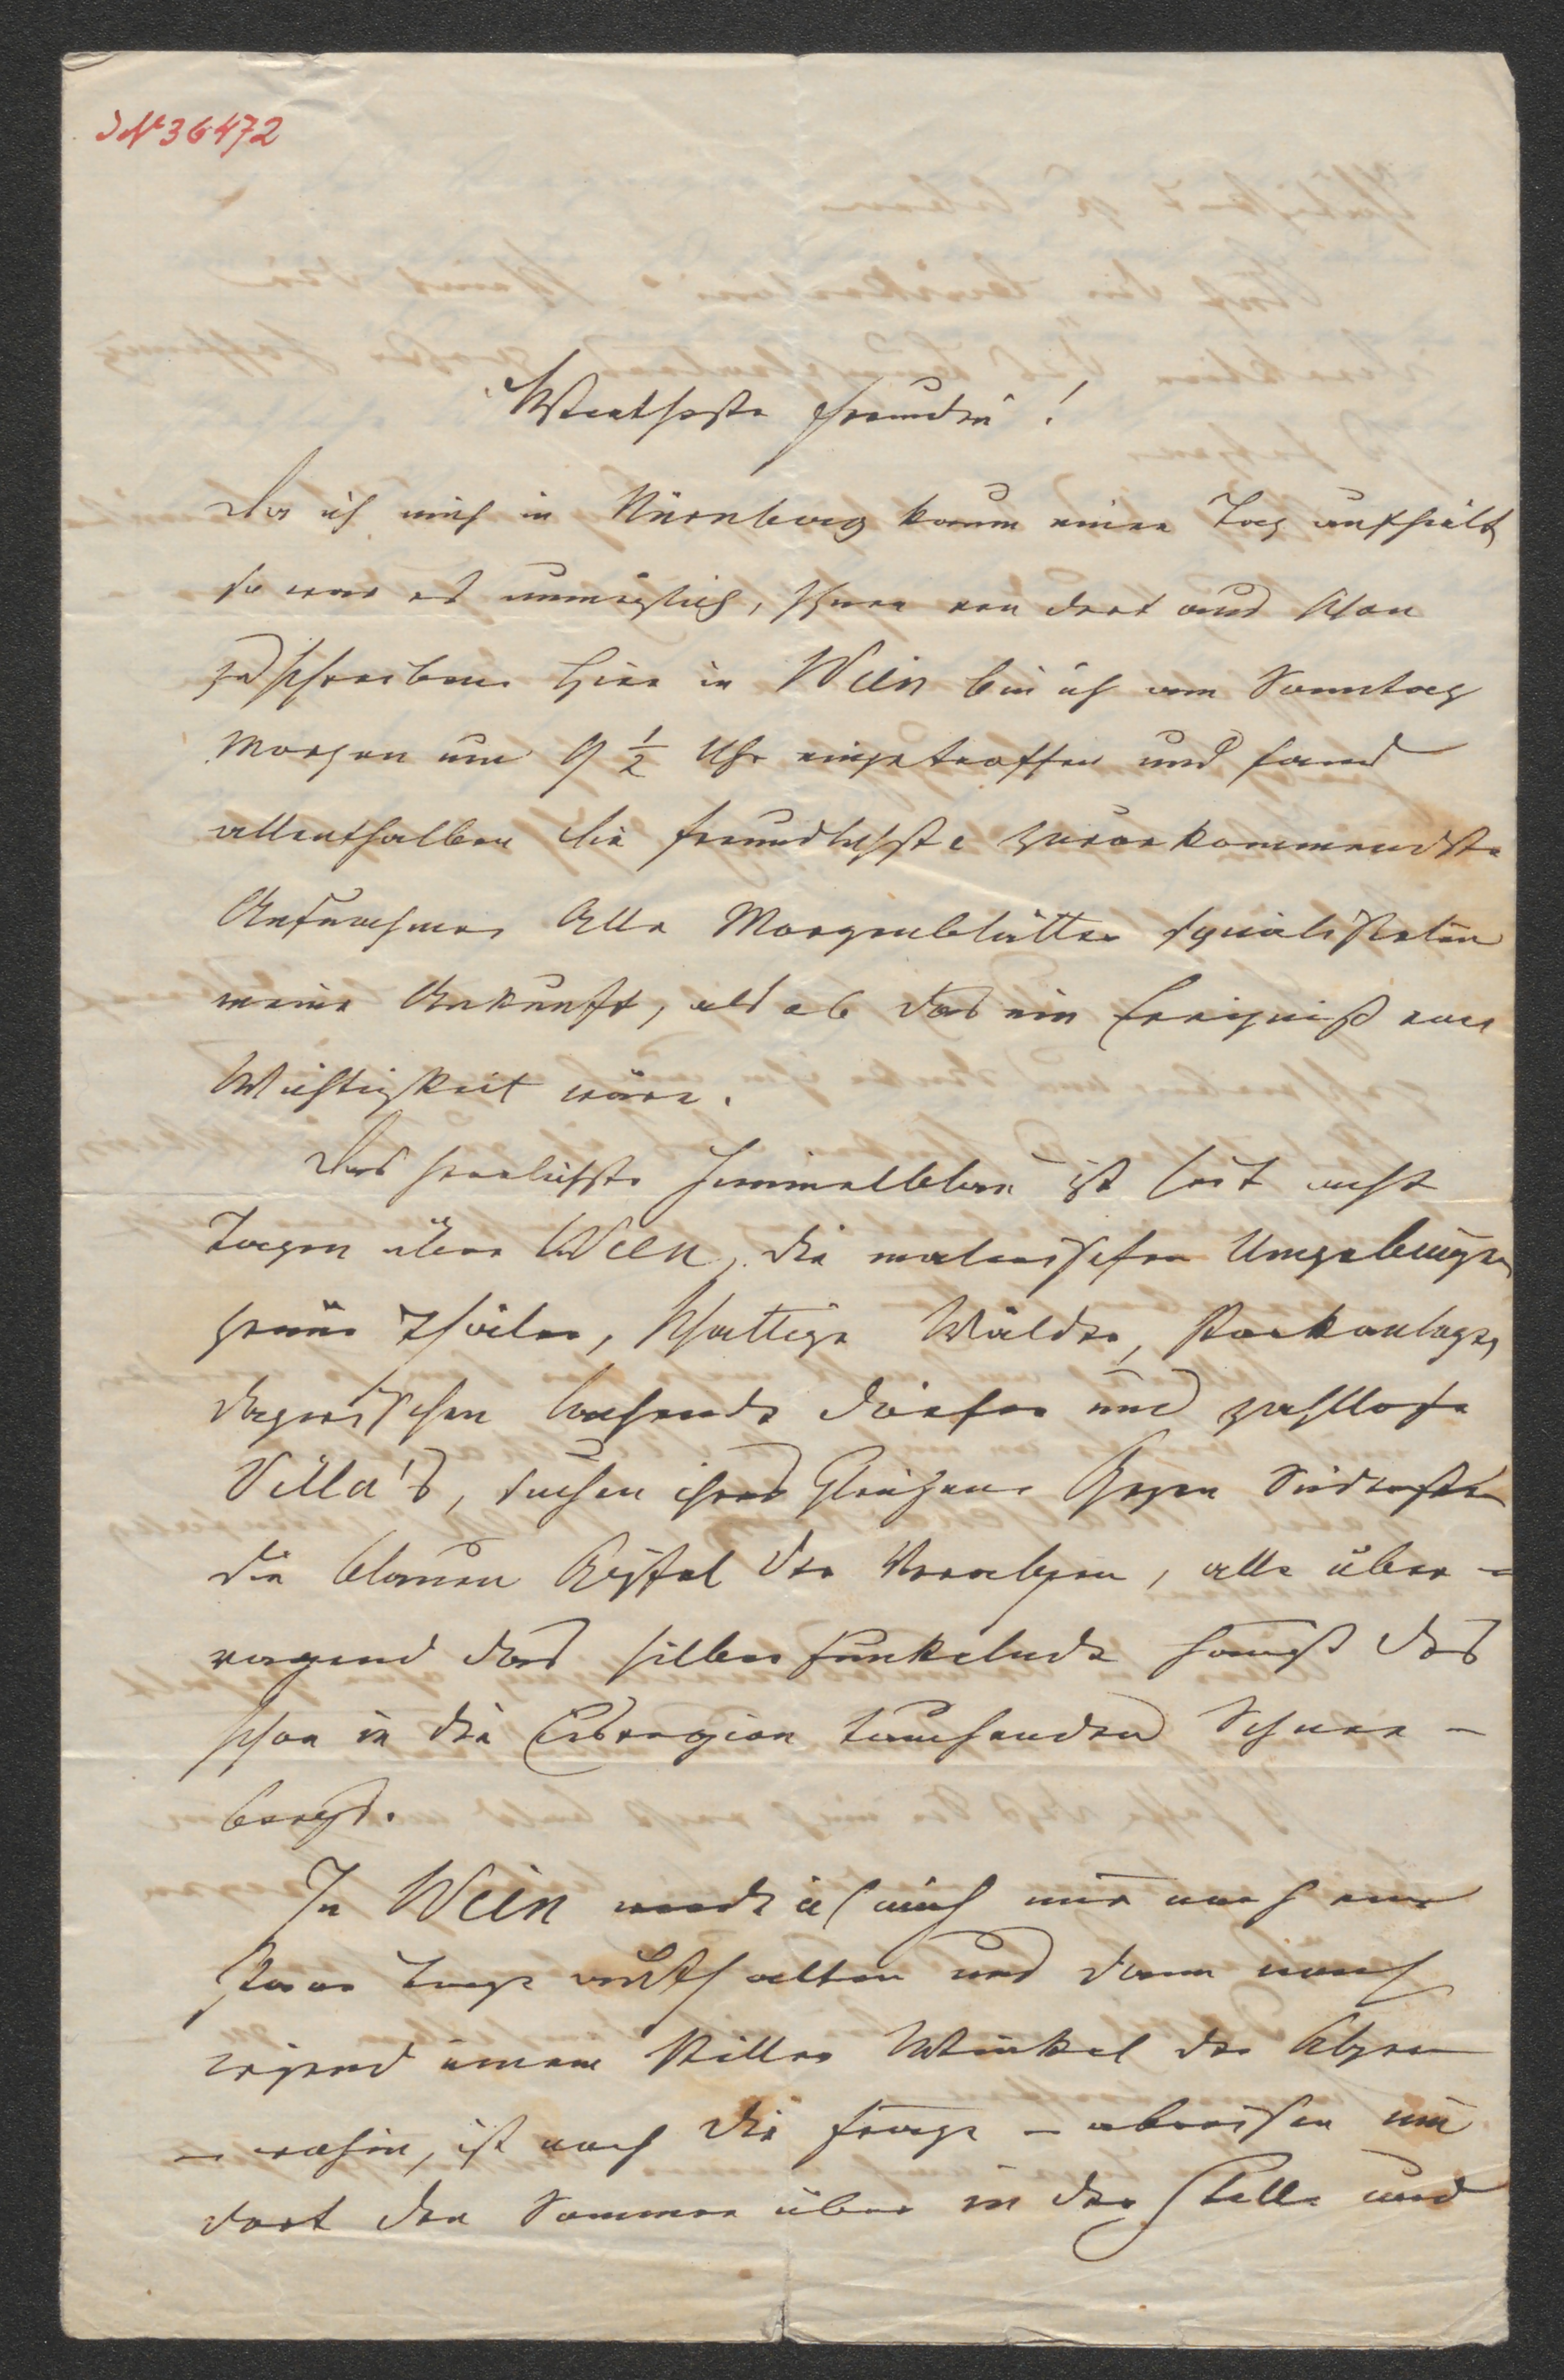 JN 36472
Wertheste Freundin!
Da ich mich in Nürnberg kaum einen Tag aufhielt,
so war es unmöglich, Ihnen von dort aus schon
zu schreiben. Hier in Wien bin ich am Sonntag
Morgen um 9 1/2 Uhr eingetroffen und fand
allenthalben die freundlichste zuvorkommendste
Aufnahme. Alle Morgenblätter signalisirten
meine Ankunft, als ob das ein Ereigniß von
Wichtigkeit wäre.
Das herrlichste Himmelblau ist seit acht
Tagen über Wien, die malerischen Umgebungen
grüne Thäler, schattige Wälder, Parkanlagen,
dazwischen lachende Dörfer und zahllose
Villa's, suchen ihres Gleichen. Gegen Südwesten
die blauen Gipfel der Voralpen, alle über-
ragend das silberfunkelnde Haupt des
schon in die Eisregion tauchenden Schnee-
bergs.
In Wien werde ich mich nur noch ein
Paar Tage aufhalten und dann nach
irgend einem stillen Winkel der Alpen
– wohin, ist noch die Frage – abreisen um
dort den Sommer über in der Stille und